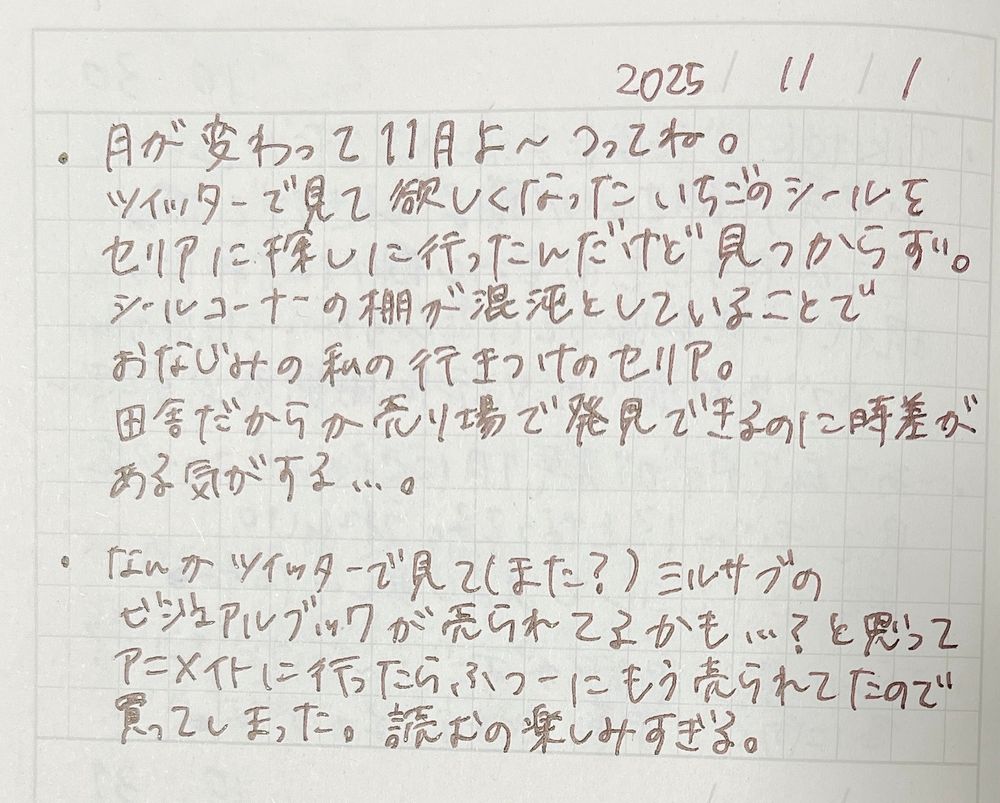 2025 / 11 / 1
・月が変わって11月よ〜つってね。
ツイッターで見て欲しくなったいちごのシールを
セリアに探しに行ったんだけど見つからず。
シールコーナーの棚が混沌としていることで
おなじみの私の行きつけのセリア。
田舎だからか売り場で発見できるのに時差が
ある気がする…。
・なんかツイッターで見て(また?)ミルサブの
ビジュアルブックが売られてるかも…?と思って
アニメイトに行ったらふつーにもう売られてたので
買ってしまった。読むの楽しみすぎる。